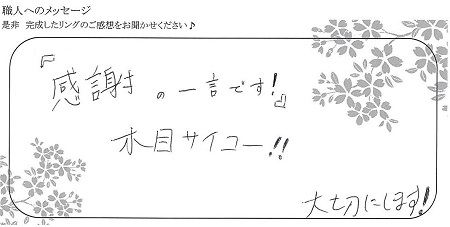 職人へのメッセージ
是非 完成したリングのご感想をお聞かせください♪
『感謝の一言です!』
木目サイコー!!
大切にします!